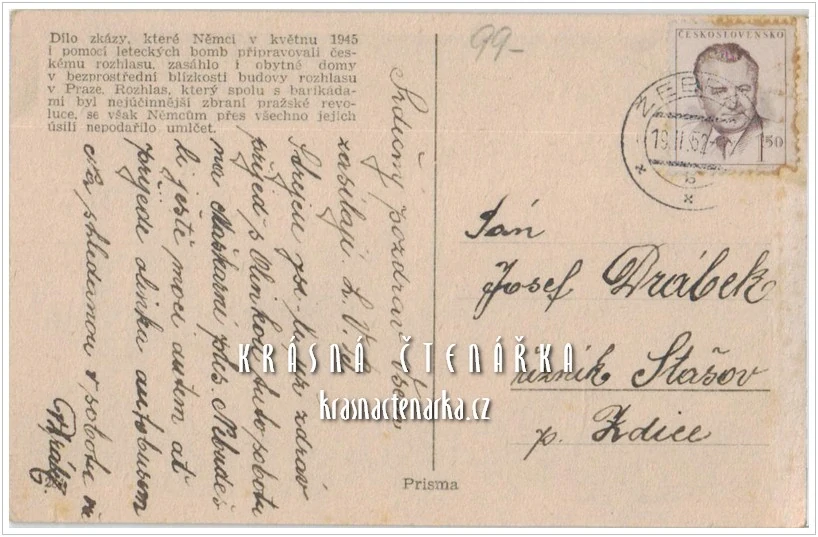 Dílo zkázy, které Němci v květnu 1945
i pomocí leteckých bomb připravovali čes-
kému rozhlasu, zasáhlo i obytné domy
v bezprostřední blízkosti budovy rozhlasu
v Praze. Rozhlas, který spolu s barikáda-
mi byl nejúčinnější zbraní pražské revo-
luce, se však Němcům přes všechno jejich
úsilí nepodařilo umlčet.
99-
ČESKOSLOVENSKO
1.50
ZEBRÁK
19.II.52
b
Srdečný pozdrav
zasílají
Strejcu jsi-li zdráv
přijeď s Olinkou tuto sobotu
na Maškarní ples. Nebudeš
li ještě moci autem ať
přijede olinka autobusem
shledanou v sobotu
Pán
Josef Drábek
řezník Stašov
p. Zdice
KRÁSNÁ ČTENÁŘKA
krasnactenarka.cz
Prisma